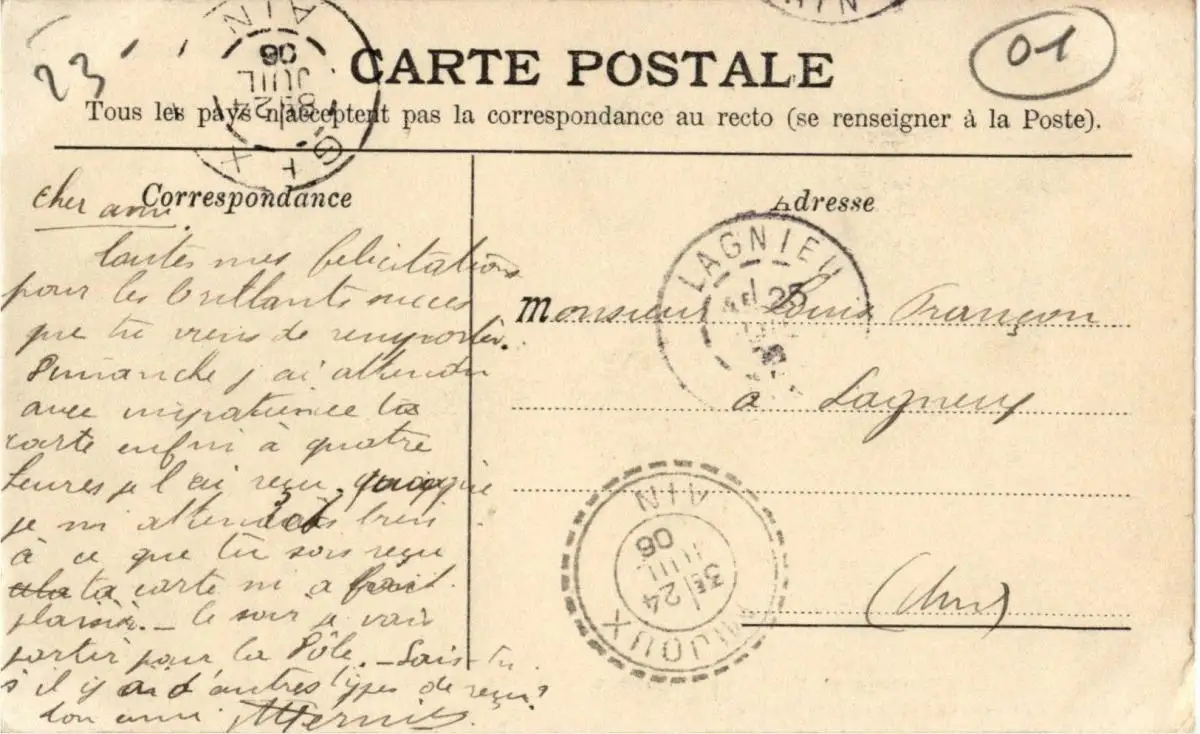 23
01
AIN
3E 24
JUIL
06
GEX
AIN
CARTE POSTALE
Tous les pays n'acceptent pas la correspondance au recto (se renseigner à la Poste).
Correspondance
Adresse
cher ami.
toutes mes felicitations
pour les brillants succes
que tu viens de remporter.
Dimanche j'ai attendu
avec impatience ta
carte enfin à quatre
heures je l'ai reçu. quoique
je m'attendais bien
à ce que tu sois reçu
ta carte m'a fait
plaisir. - le soir je vais
partir pour la Pôle. - Sais tu
s'il y a d'autres types de reçu?
ton ami
LAGNIEU
25
Monsieur Louis Françon
à Lagnieu
(Ain)
AIN
3E 24
JUIL
06
MIJOUX